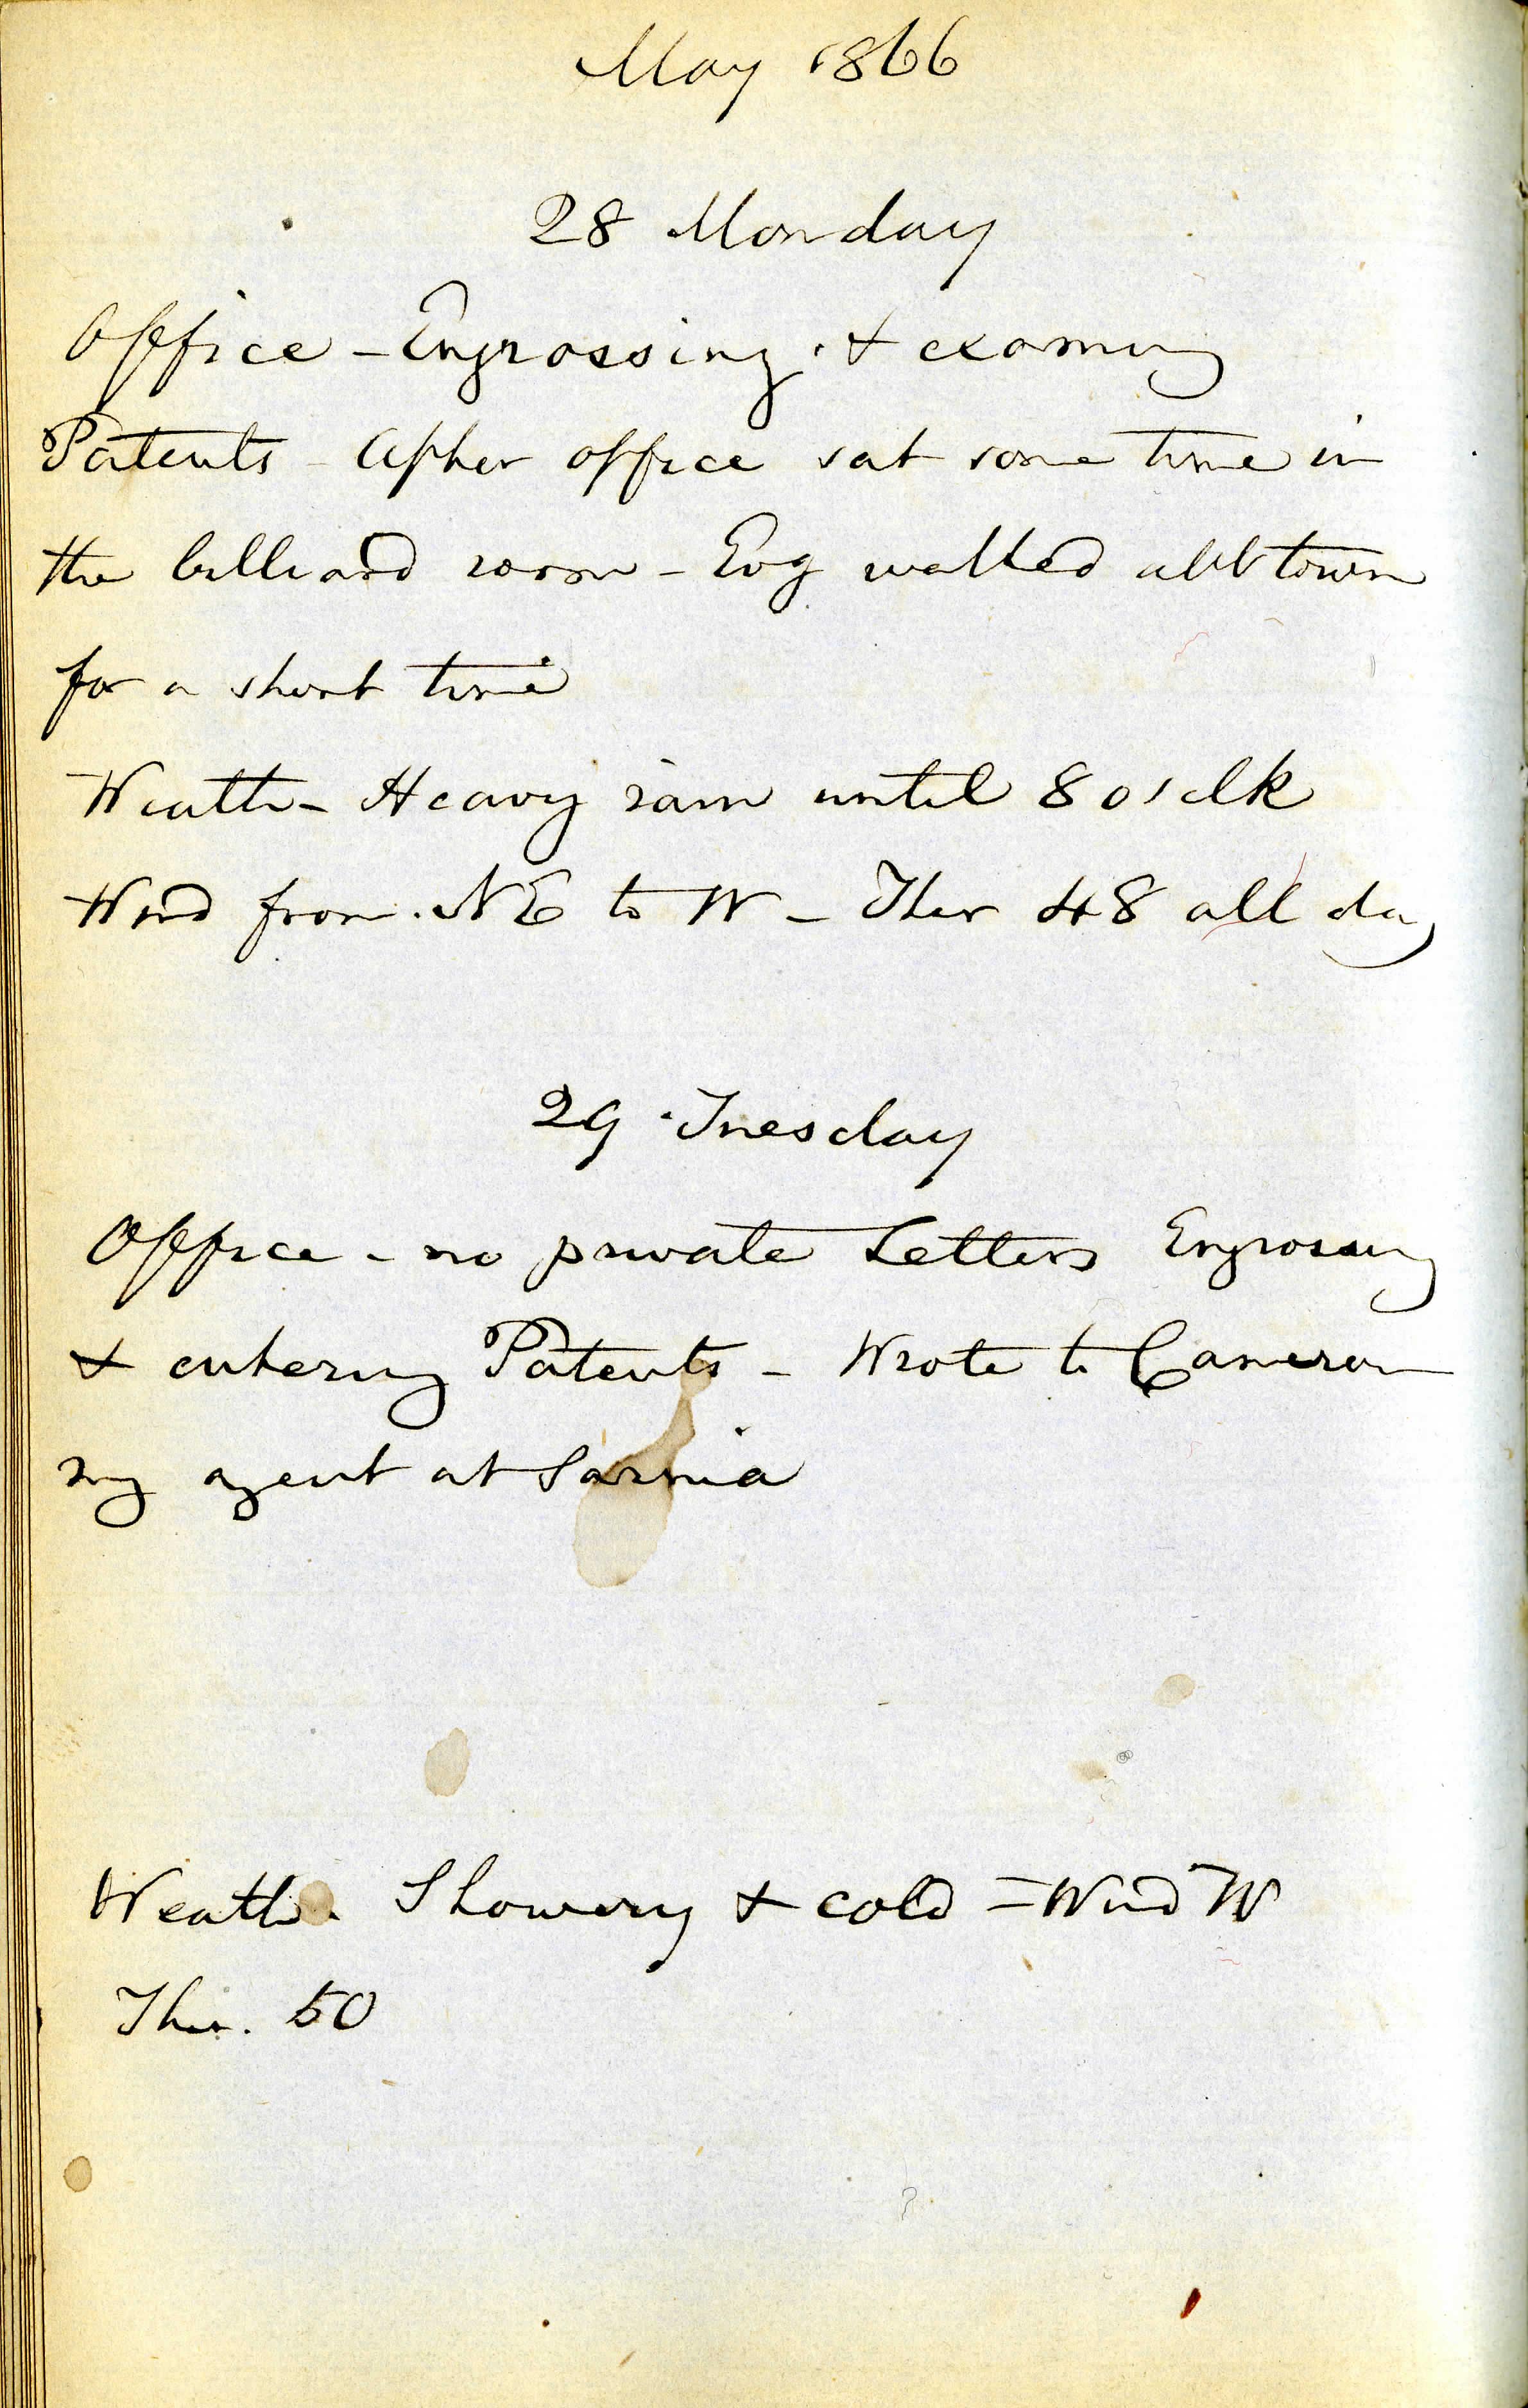 May 1866
28 Monday
Office - Engrossing & examing
Patents - After office sat some time in
the billiard room - Evg walked abt town
for a short time
Weathr - Heavy rain until 8 o'clk
Wind from NE to W - Ther 48 all day
29 Tuesday
Office - no private Letters Engrossing
& entering Patents - Wrote to Cameron
my agent at Sarnia
Weathr. Showery & cold = Wind W
Ther. 50